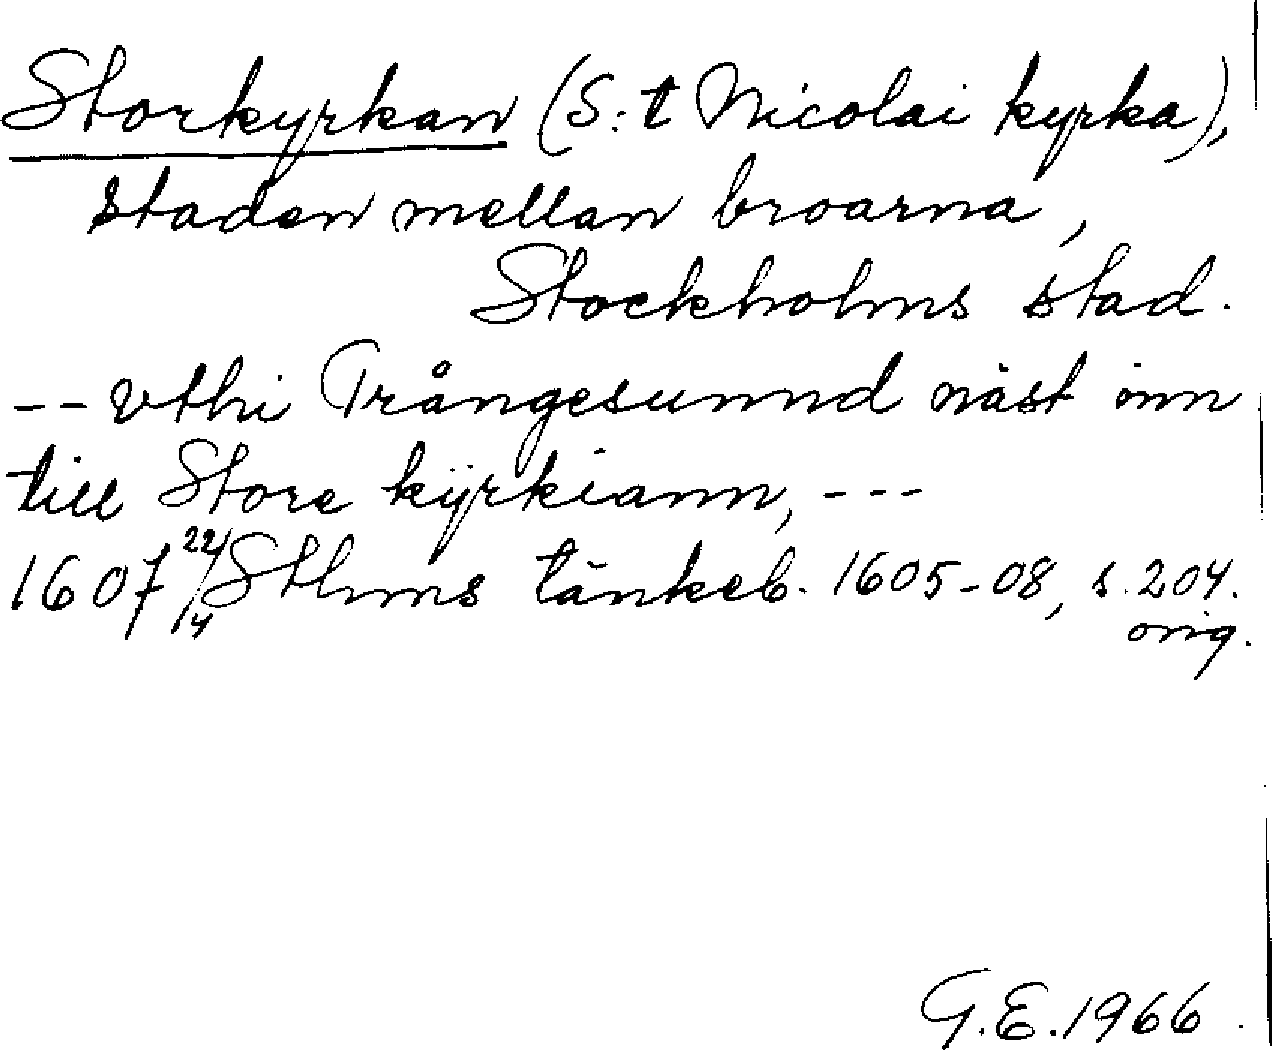 Storkyrkan (S:t Nicolai kyrka),
staden mellan broarna,
Stockholms stad.
-- vthi Trångesunnd näst inn
till Store kÿrkiann, ---
1607 22/4 Sthms tänkeb. 1605-08, s. 204.
orig.
G.E. 1966.